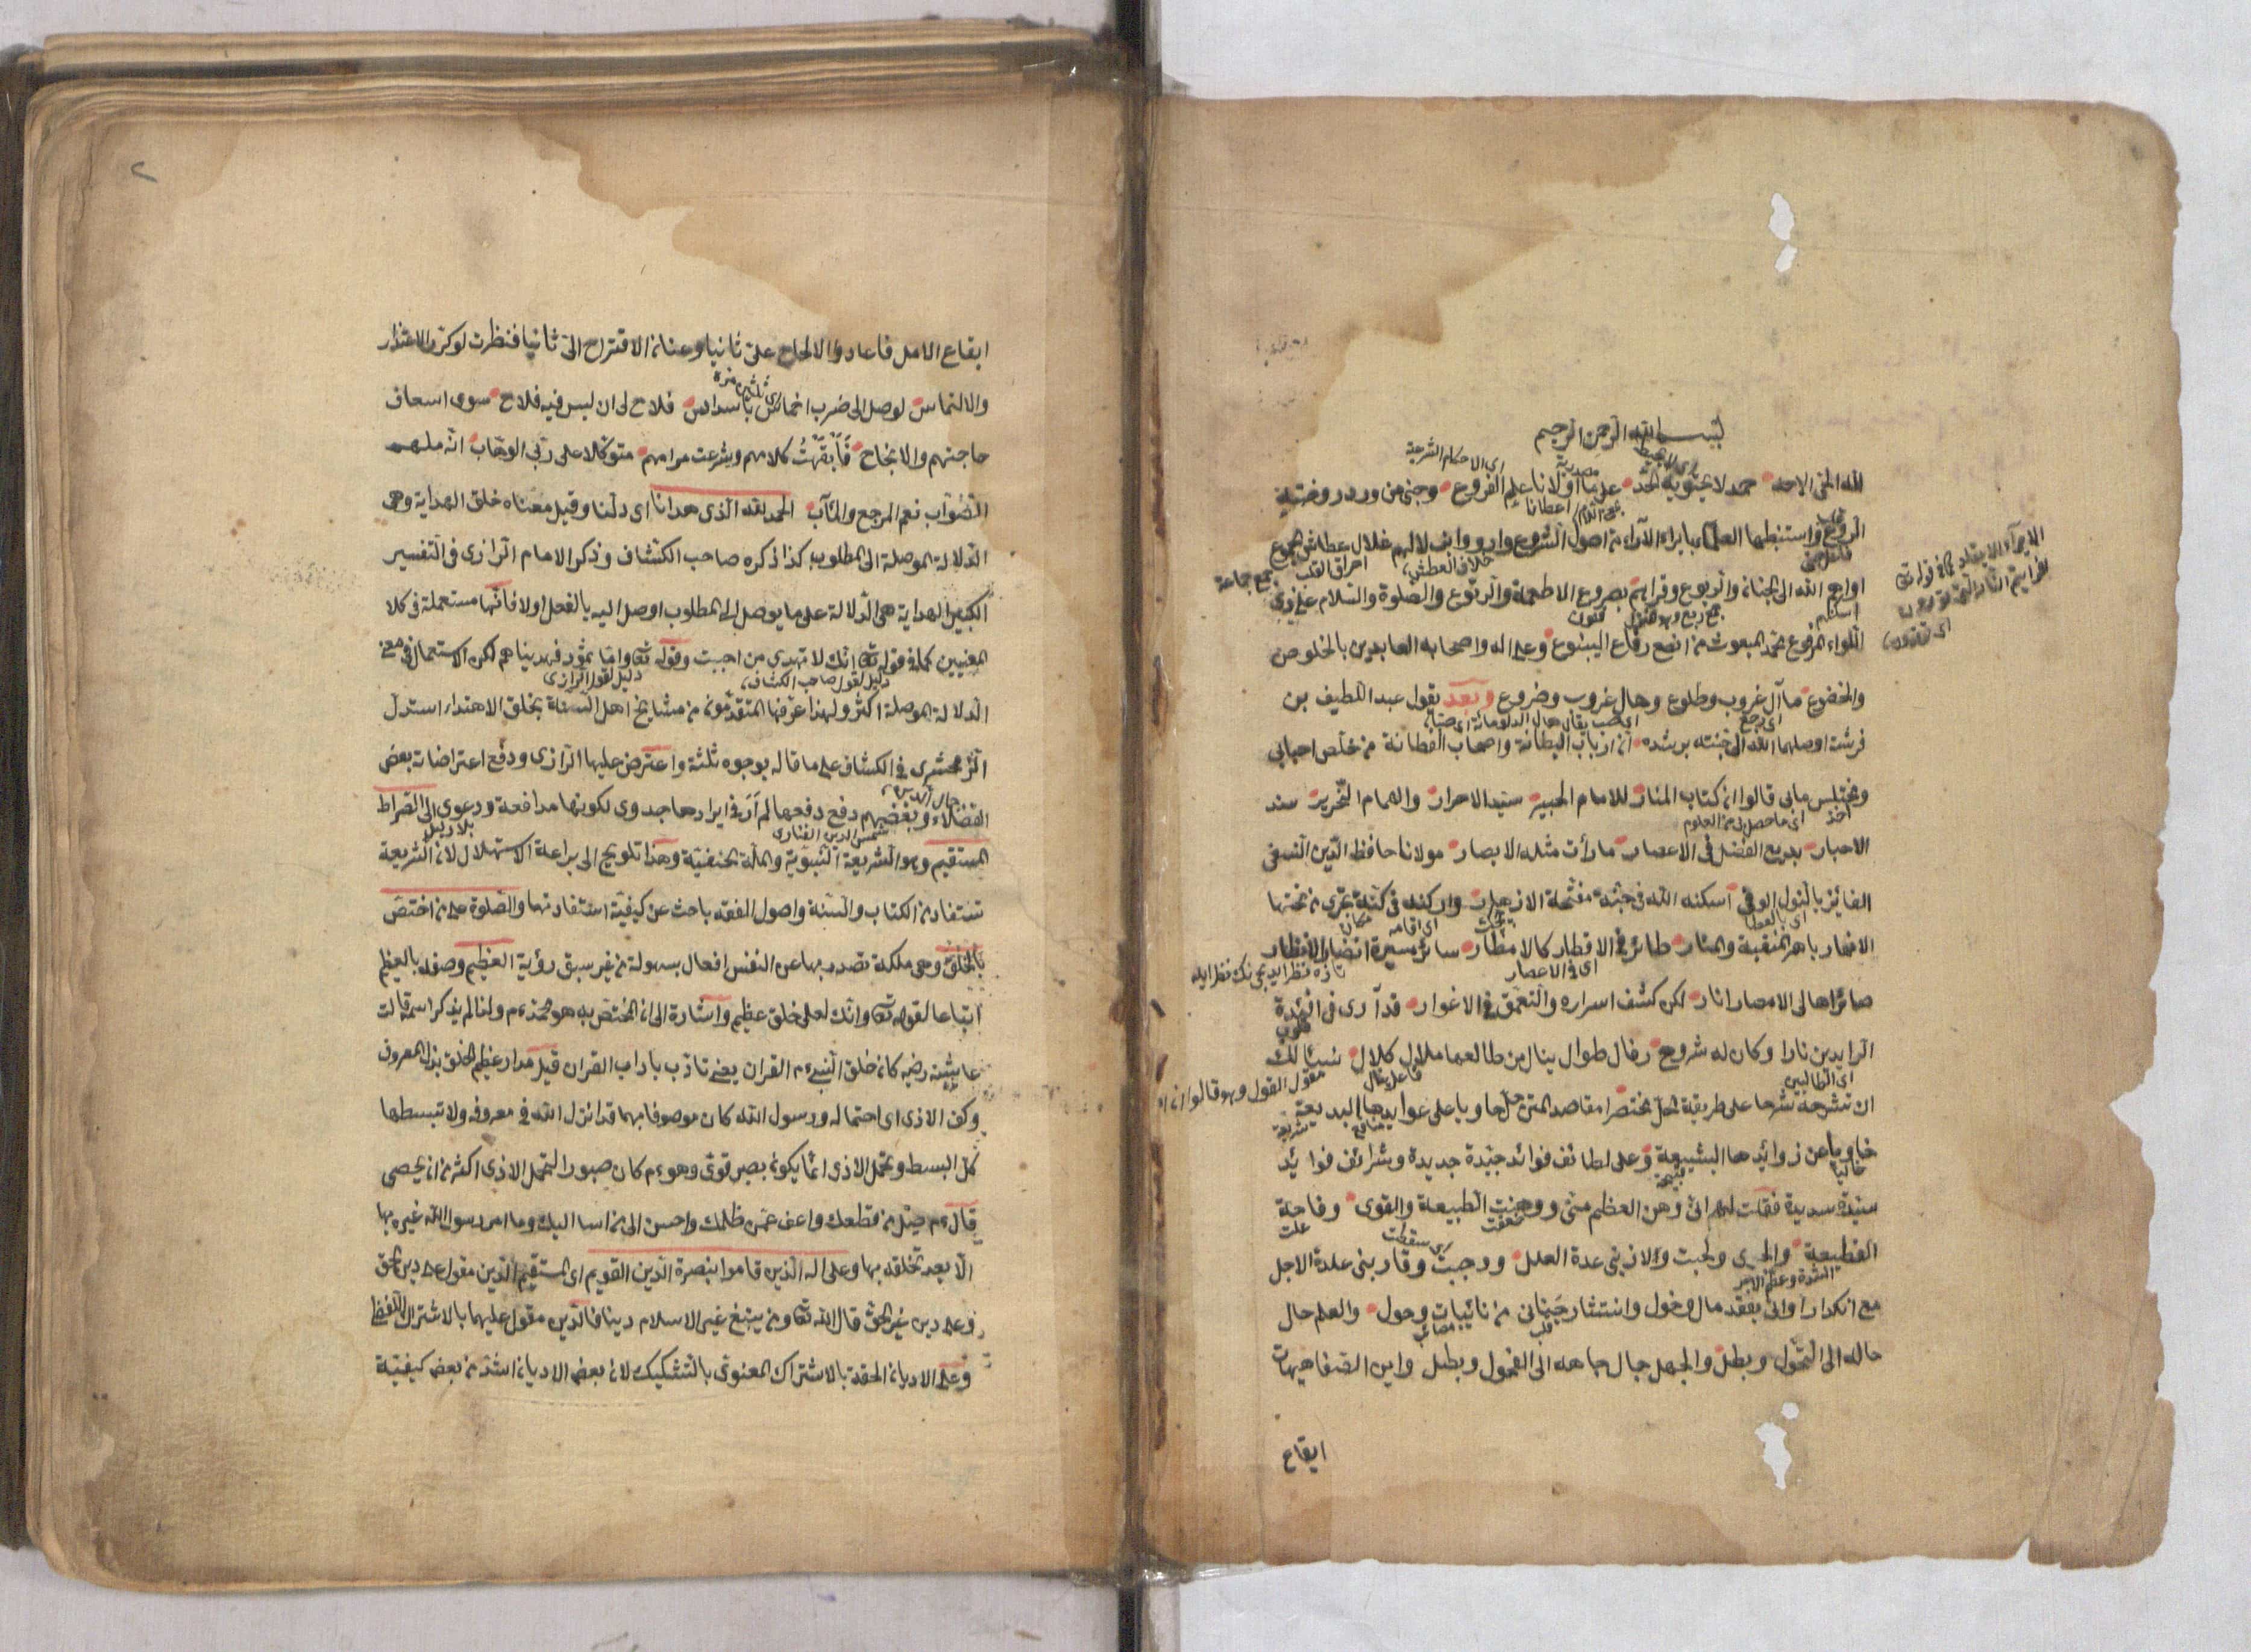 بسم الله الرحمن الرحيم
لله المحق الاحد حمد لا يحتويه الحد على ما اولانا علم الفروع وجنى من ورد روضتيه
واستنبطها العلماء بايراء الآراء من اصول الشروع
اواهم الله الى الجنان والربوع وقراهم بصروع الاطعمة والرتوع والصلوة والسلام على ذوى
اللواء المرفوع محمد المبعوث من انصع رقاع الينبوع وعلى اله واصحابه العابدين بالخلوص
والخضوع ما آل غروب وطلوع وحال غروب وضروع وبعد يقول عبد اللطيف بن
فرشته اوصلهما الله الى جنته برشده ان ارباب البطانة واصحاب الفطانة من خلص احبابى
ومختلس مابى قالوا ان كتاب المنار للامام الحبير سيد الاحرار والهمام النحرير سند
الاحبار بديع الفضل فى الاعصار ما رأت مثله الابصار مولانا حافظ الدين النسفى
الفائز بالنول الوفى اسكنه الله فى جنة مفتحة الازهار واركنه فى كنة تجرى من تحتها
الانهار باهر المنقبة والمنار طائر فى الاقطار كالامطار سائر مسيرة انضار الانظار
صائرا هالى الامصار انار لكن كشف اسراره والتعمق فى الاغوار قد آرى فى افئدة
الرايدين نارا وكان له شروح رفال طوال ينال من طالعها ملال كلال سئالك
ان تشرحه شرحا على طريقة الحل مختصرا مقاصد المتن حل حاويا على عوايدها البديعة
خاويا عن زوايدها البشيعة وعلى لطائف فوائد جيدة جديدة وشرائف فوايد
سنيدة سديدة فقلت لهم انى وهن العظم منى ووهنت الطبيعة والقوى وفاحة
الفظيعة والحمى ولحبت ولازيتى عدة العلل ووجبت وقاربنى علدة الاجل
مع انكدار اوانى بفقد مال وخول وانتشار جنانى من نائبات وحول والعلم حال
حاله الى التحول وبطل والجهل جال جاهه الى الفحول وبطل واين الصفا هيهات
ايقاع
اى الاحكام الشرعية
مصدرية
اعطانا
خلاف العطش
احراق القلب
جمع جماعة
اسكنهم
اى تقدحون
اى رجع
اخذ
اى ما حصل لى من العلوم
اى بالعطا
اى اقامه
مكان
اى فى الاعصار
قلوب
اى الطالبين
فاعل ينال
مقول القول وهو قالوا ان اه
منافع
خاليا
قبيحة
ضعفت
اى سقطت
علت
قلب
مصائب
٢
ايقاع الامل فاعادوا الالحاح على ثانيا وعنان الاقتراح الى ثانيا فنظرت لو كثر الاعتذار
والالتماس لوصل الى ضرب اخماس باسداس فلاح لى ان ليس فيه فلاح سوى اسعاف
حاجتهم والانجاح كلامهم وشرعت مرامهم متوكلا على ربى الوهاب انه ملهم
الصواب نعم المرجع والمآب الحمد لله الذى هدانا اى دلنا وقيل معناه خلق الهداية وهى
الدلالة الموصلة الى المطلوب كذا ذكره صاحب الكشاف وذكر الامام الرازى فى التفسير
الكبير الهداية هى الدلالة على ما يوصل الى المطلوب اوصل اليه بالفعل اولا فانها مستعملة فى كلا
المعنيين كما فى قوله تعا انك لا تهدى من احببت وقوله تعا واما ثمود فهديناهم لكن الاستعمال فى معنى
دليل لقول صاحب الكشاف
دليل لقول الرازى
الدلالة الموصلة اكثر ولهذا عرفها المتقدمون من مشايخ اهل السنة بخلق الاهتداء استدل
الزمخشرى فى الكشاف على ما قاله بوجوه ثلثة واعترض عليها الرازى ودفع اعتراضات بعض
الفضلاء وبعضهم دفع دفعها لم أر فى ايرادها جدوى لكونها مدافعة ودعوى الى الصراط
جمال الدين
شمس الدين الفنارى
بلا دليل
المستقيم وهو الشريعة النبوية والملة الحنفية وهذا تلويح الى براعة الاستهلال لان الشريعة
تستفاد من الكتاب والسنة واصول الفقه باحث عن كيفية استفادتها والصلوة على من اختص
بالخلق وهى ملكة تصدر بها عن النفس افعال بسهولة من غير سبق رؤية العظيم وصفه بالعظيم
اتباعا لقوله تعا وانك لعلى خلق عظيم واشارة الى ان المختص به هو محمد عم ولذا لم يذكر اسمه قالت
عايشة رضه كان خلق النبى عم القران يعنى تادب باداب القران قيل مدار عظيم الخلق بذل المعروف
وكف الاذى اى احتماله ورسول الله كان موصوفا بهما قد انزل الله فى معروفه ولا تبسطها
كل البسط وتحمل الاذى انما يكون بصبر قوى وهو عم كان صبورا لتحمل الاذى اكثر من ان يحصى
قال عم صل من قطعك واعف عمن ظلمك واحسن الى من اسا اليك وما امر رسول الله غيره بها
الا بعد تخلقه بها وعلى اله الذين قاموا بنصرة الدين القويم اى المستقيم الدين مقول على دين الحق
وعلى دين غير الحق قال الله تعا ومن يبتغ غير الاسلام دينا فالدين مقول عليهما بالاشتراك اللفظى
وعلى الاديان الحقة بالاشتراك المعنوى بالتشكيك لان بعض الاديان اشد من بعض كيفية